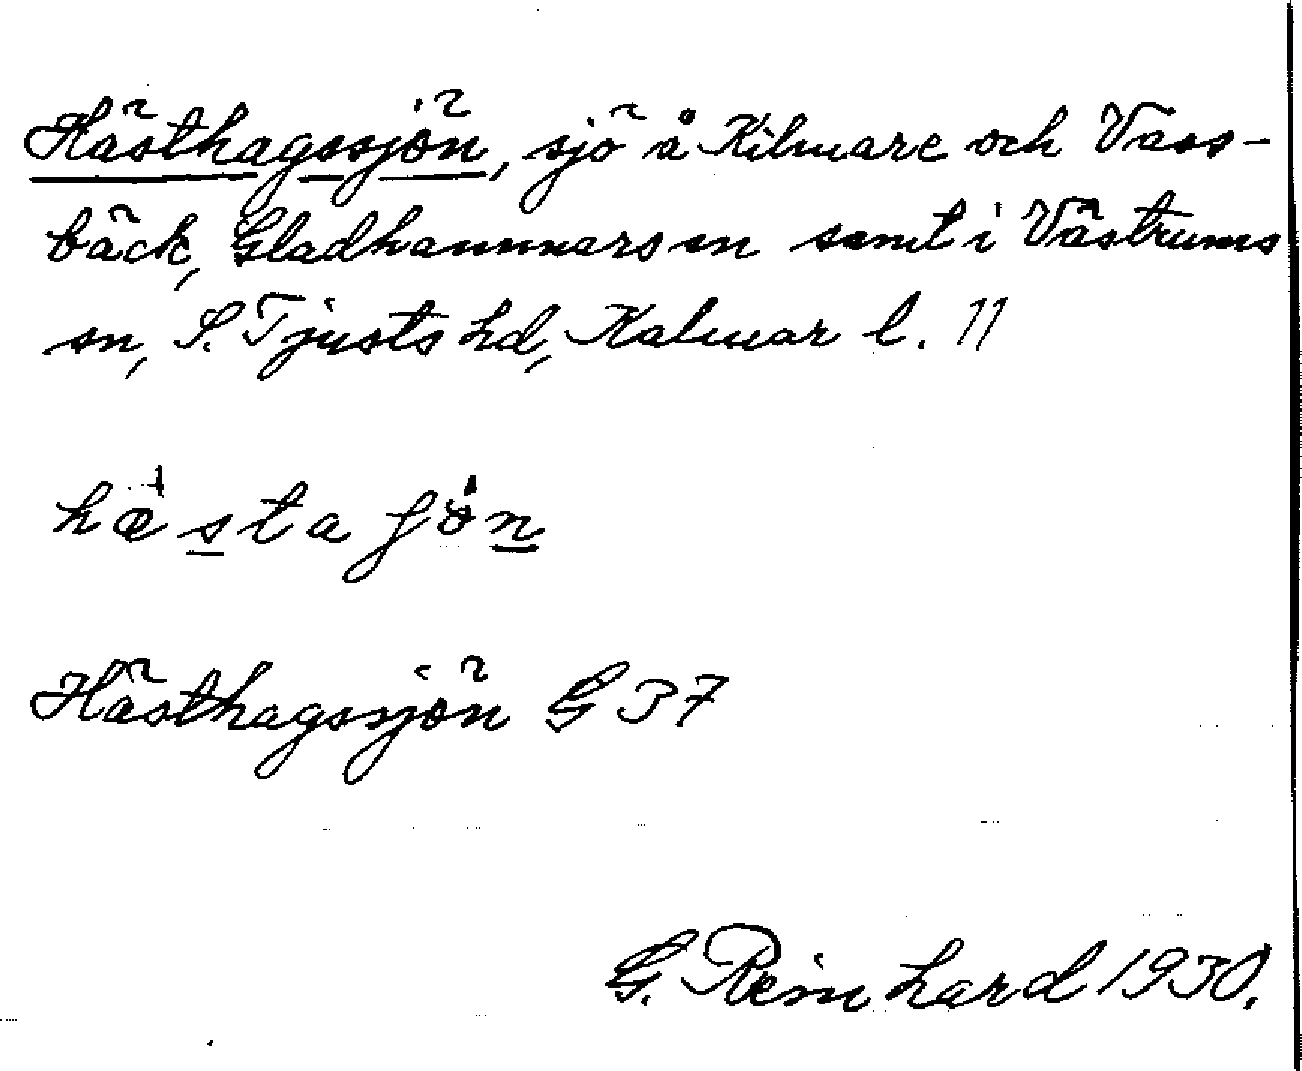 Hästhagssjön, sjö å Kilmare och Vass-
bäck, Gladhammars sn samt i Västrums
sn, S. Tjusts hd, Kalmar l. 11
hæ̀sta ʃö̀n
Hästhagssjön G 37
G. Reinhard 1930.